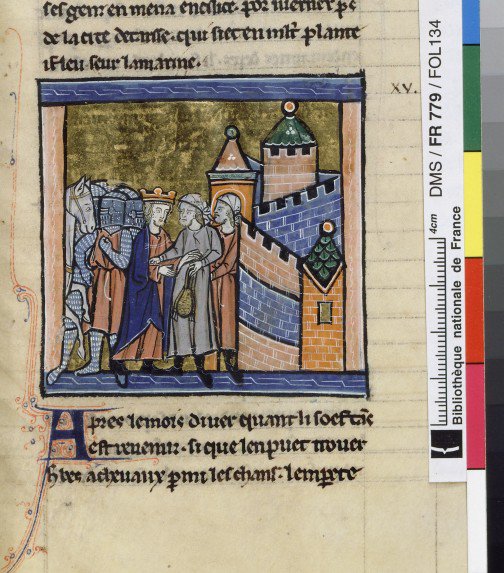 ses genz en mena en cesile por iverner pres
de la cite de tusse qui siet en mlt plante
if leu seur la marine.
XV.
Apres le mois diver quant li soef tens
est revenuz si que len puet trover
herbes a chevaux parmi les chans lemperere
DMS / FR 779 / FOL134
4cm
Bibliothèque nationale de France